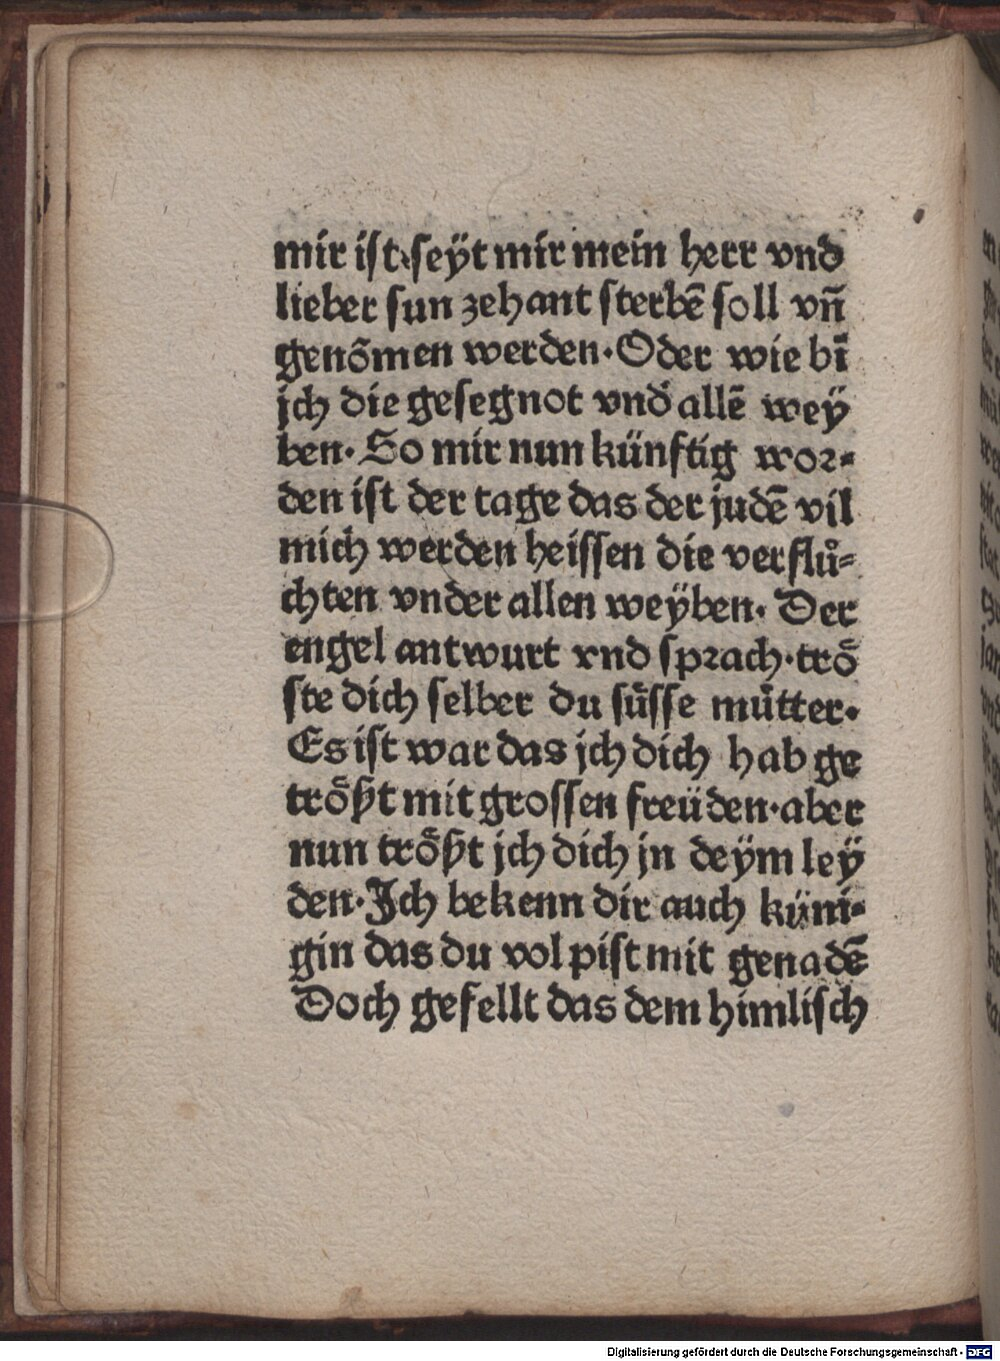 mir ist·seÿt mir mein herr vnd
lieber sun zehant sterbē soll vn̄
genōmen werden·Oder wie bī
jch die gesegnot vnd̓ allē weÿ
ben· So mir nun künftig wor⸗
den ist der tage das der judē vil
mich werden heissen die verflů⸗
chten vnder allen weÿben· Der
engel antwurt vnd sprach·trö
ste dich selber du süsse můtter·
Es ist war das jch dich hab ge
trößt mit grossen freüden·aber
nun trößt jch dich jn deÿm leÿ
den·Jch bekenn dir auch küni⸗
gin das du vol pist mit genadē
Doch gefellt das dem himlisch
Digitalisierung gefördert durch die Deutsche Forschungsgemeinschaft - DFG